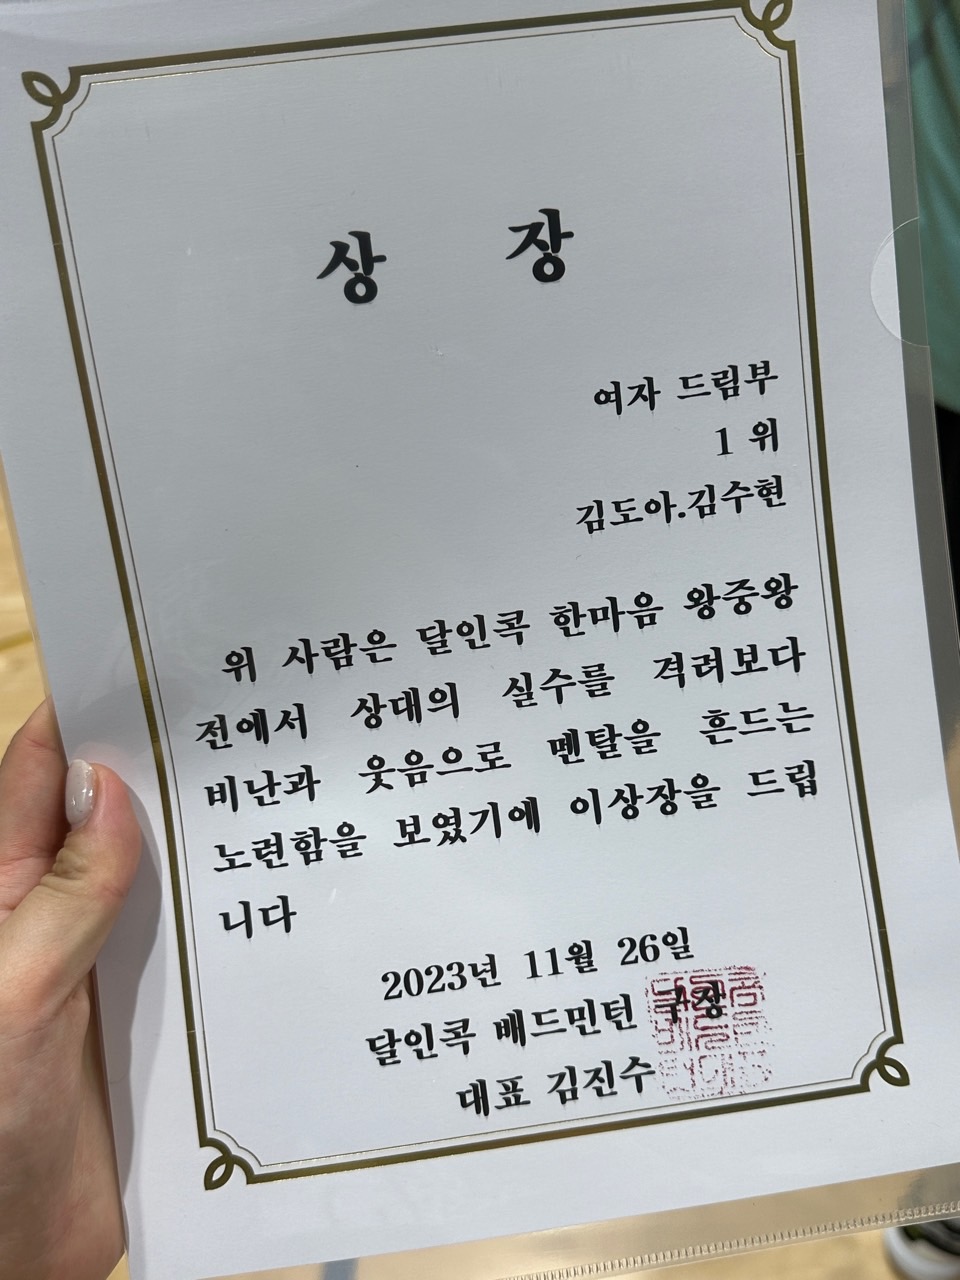 상 장
여자 드림부
1 위
김도아.김수현
위 사람은 달인콕 한마음 왕중왕
전에서 상대의 실수를 격려보다
비난과 웃음으로 멘탈을 흔드는
노련함을 보였기에 이상장을 드립
니다
2023년 11월 26일
달인콕 배드민턴 구장
대표 김진수